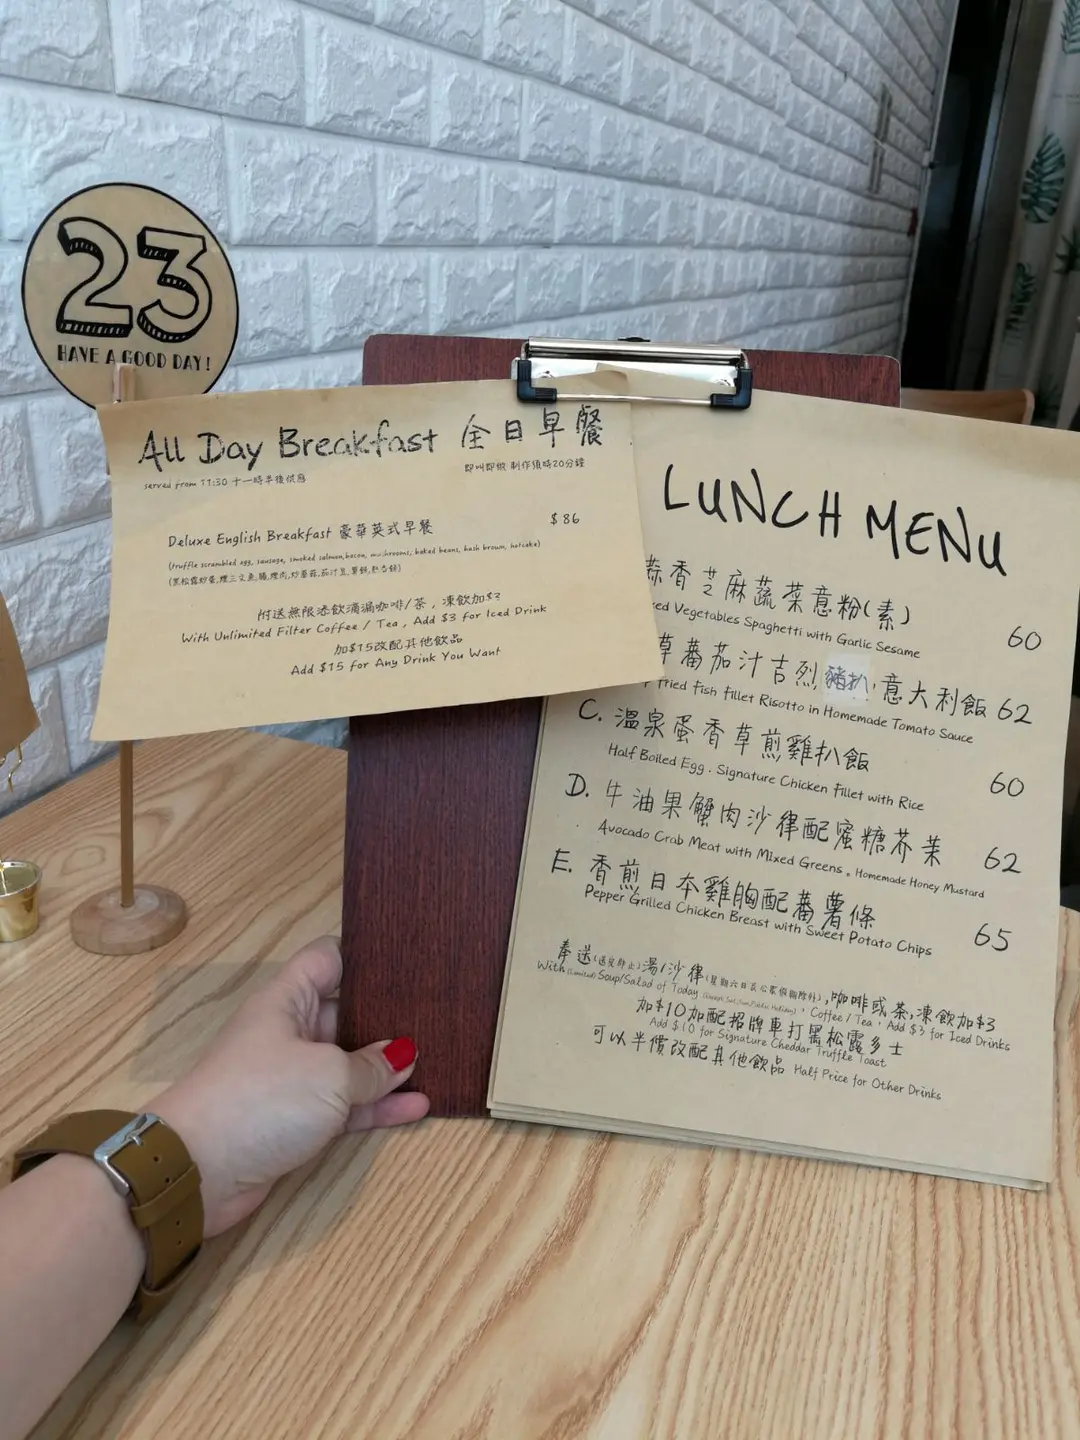 23
HAVE A GOOD DAY!
All Day Breakfast 全日早餐
served from 11:30 十一時半後供應
即叫即做 制作須時20分鐘
Deluxe English Breakfast 豪華英式早餐 $86
(truffle scrambled egg, sausage, smoked salmon, bacon, mushrooms, baked beans, hash brown, hotcake)
附送無限添飲滴漏咖啡/茶，凍飲加$3
With Unlimited Filter Coffee / Tea , Add $3 for Iced Drink
加$15改配其他飲品
Add $15 for Any Drink You Want
LUNCH MENU
蒜香芝麻蔬菜意粉(素) 60
Vegetables Spaghetti with Garlic Sesame
草蕃茄汁吉烈豬扒意大利飯 62
Fried Fish Fillet Risotto in Homemade Tomato Sauce
C. 溫泉蛋香草煎雞扒飯 60
Half Boiled Egg . Signature Chicken Fillet with Rice
D. 牛油果蟹肉沙律配蜜糖芥茉 62
Avocado Crab Meat with Mixed Greens . Homemade Honey Mustard
E. 香煎日本雞胸配蕃薯條 65
Pepper Grilled Chicken Breast with Sweet Potato Chips
奉送(送完即止)湯/沙律(星期六日及公眾假期除外),咖啡或茶,凍飲加$3
With (Limited) Soup/Salad of Today (Except Sat/Sun/Public Holiday), Coffee / Tea , Add $3 for Iced Drinks
加$10加配招牌車打黑松露多士
Add $10 for Signature Cheddar Truffle Toast
可以半價改配其他飲品 Half Price for Other Drinks